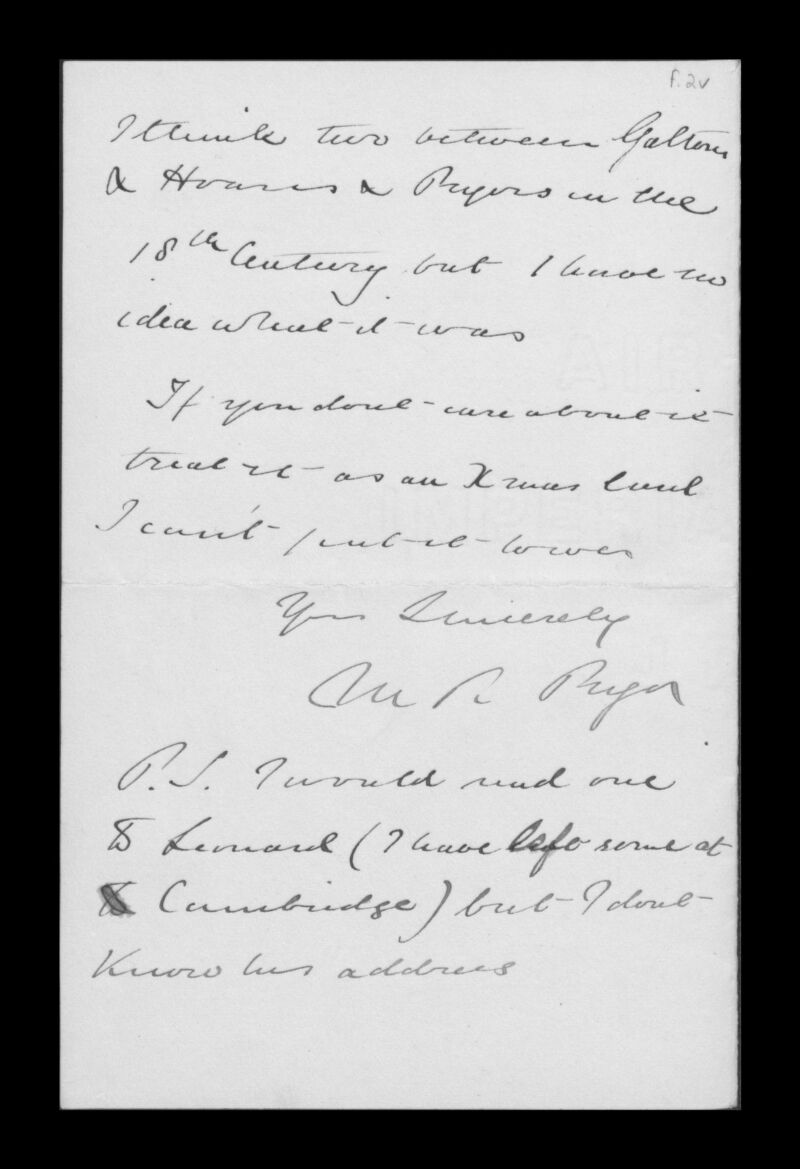 f.2v
I think two between Galtons
& Hoares & Pryors in the
18th Century but I have no
idea what it was
If you dont care about it
treat it as an Xmas card
I can't put it lower
Yrs Sincerely
M R Pryor
P.S. I would send one
to Leonard (I have left some at
Cambridge) but I dont
Know his address